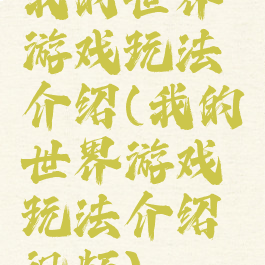 我的世界
游戏玩法
介绍(我的
世界游戏
玩法介绍
视频)